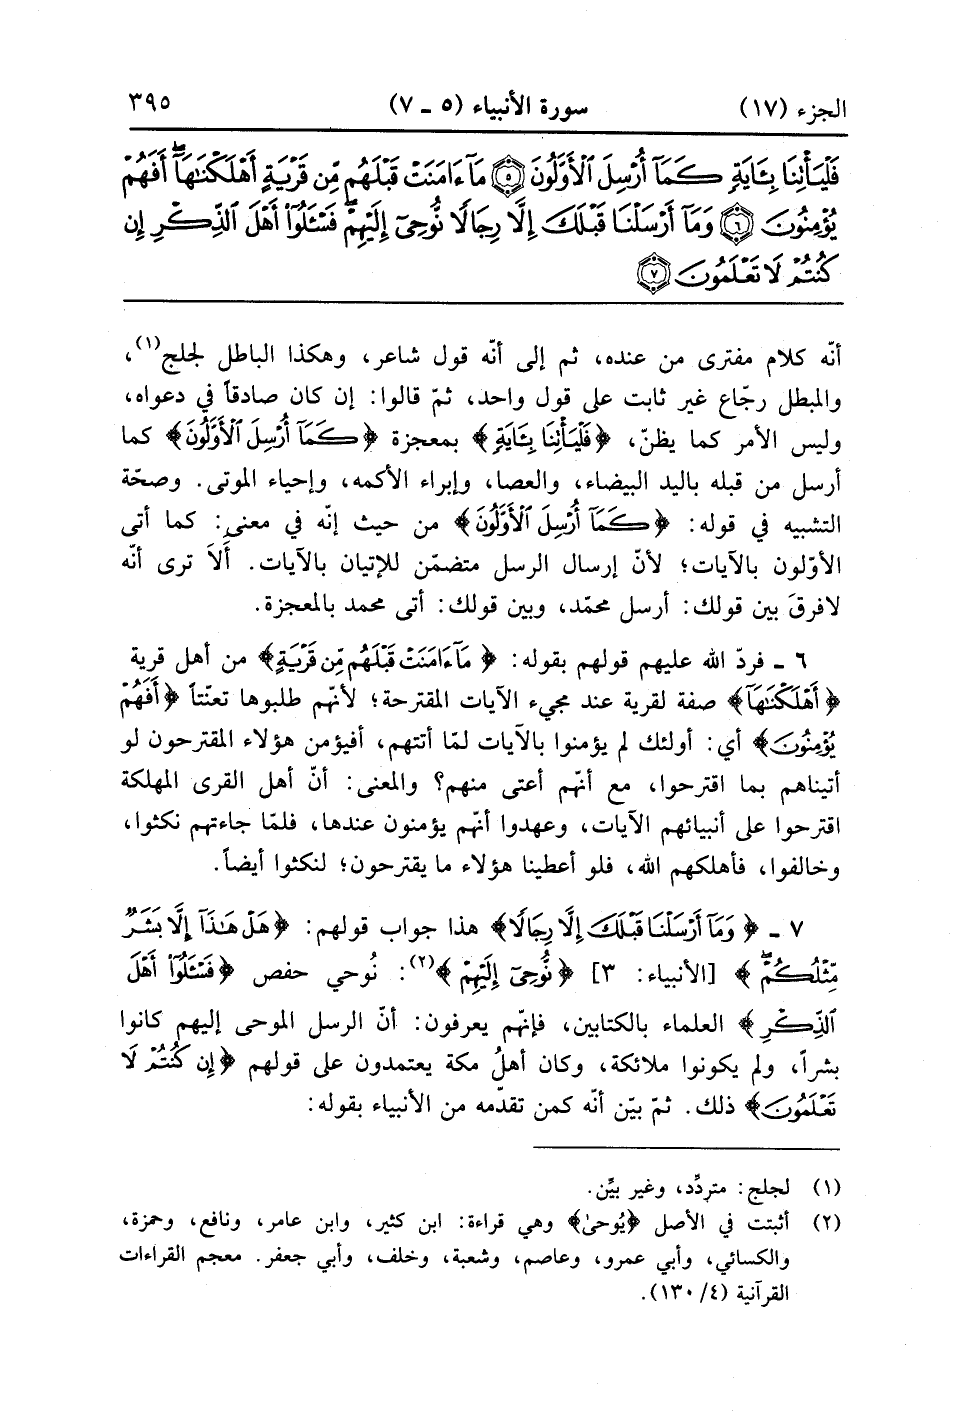 الجزء (١٧) سورة الأنبياء (٥ ـ ٧) ٣٩٥
فَلْيَأْتِنَا بِـَٔايَةٍ كَمَآ أُرْسِلَ ٱلْأَوَّلُونَ ۝٥ مَآ ءَامَنَتْ قَبْلَهُم مِّن قَرْيَةٍ أَهْلَكْنَٰهَآ ۖ أَفَهُمْ
يُؤْمِنُونَ ۝٦ وَمَآ أَرْسَلْنَا قَبْلَكَ إِلَّا رِجَالًا نُّوحِىٓ إِلَيْهِمْ ۖ فَسْـَٔلُوٓا۟ أَهْلَ ٱلذِّكْرِ إِن
كُنتُمْ لَا تَعْلَمُونَ ۝٧
أنّه كلام مفترى من عنده، ثم إلى أنّه قول شاعر، وهكذا الباطل لجلج(١)،
والمبطل رجّاع غير ثابت على قول واحد، ثمّ قالوا: إن كان صادقاً في دعواه،
وليس الأمر كما يظنّ، ﴿فَلْيَأْتِنَا بِـَٔايَةٍ﴾ بمعجزة ﴿كَمَآ أُرْسِلَ ٱلْأَوَّلُونَ﴾ كما
أرسل من قبله باليد البيضاء، والعصا، وإبراء الأكمه، وإحياء الموتى. وصحّة
التشبيه في قوله: ﴿كَمَآ أُرْسِلَ ٱلْأَوَّلُونَ﴾ من حيث إنّه في معنى: كما أتى
الأوّلون بالآيات؛ لأنّ إرسال الرسل متضمّن للإتيان بالآيات. ألَا ترى أنّه
لافرقَ بين قولك: أرسل محمّد، وبين قولك: أتى محمد بالمعجزة.
٦ ـ فردّ الله عليهم قولهم بقوله: ﴿مَآ ءَامَنَتْ قَبْلَهُم مِّن قَرْيَةٍ﴾ من أهل قرية
﴿أَهْلَكْنَٰهَآ﴾ صفة لقرية عند مجيء الآيات المقترحة؛ لأنهم طلبوها تعنّتاً ﴿أَفَهُمْ
يُؤْمِنُونَ﴾ أي: أولئك لم يؤمنوا بالآيات لمّا أتتهم، أفيؤمن هؤلاء المقترحون لو
أتيناهم بما اقترحوا، مع أنهم أعتى منهم؟ والمعنى: أنّ أهل القرى المهلكة
اقترحوا على أنبيائهم الآيات، وعهدوا أنهم يؤمنون عندها، فلمّا جاءتهم نكثوا،
وخالفوا، فأهلكهم الله، فلو أعطينا هؤلاء ما يقترحون؛ لنكثوا أيضاً.
٧ ـ ﴿وَمَآ أَرْسَلْنَا قَبْلَكَ إِلَّا رِجَالًا﴾ هذا جواب قولهم: ﴿هَلْ هَٰذَآ إِلَّا بَشَرٌ
مِّثْلُكُمْ ۖ﴾ [الأنبياء: ٣] ﴿نُّوحِىٓ إِلَيْهِمْ﴾(٢): نُوحي حفص ﴿فَسْـَٔلُوٓا۟ أَهْلَ
ٱلذِّكْرِ﴾ العلماء بالكتابين، فإنهم يعرفون: أنّ الرسل الموحى إليهم كانوا
بشراً، ولم يكونوا ملائكة، وكان أهلُ مكة يعتمدون على قولهم ﴿إِن كُنتُمْ لَا
تَعْلَمُونَ﴾ ذلك. ثمّ بيّن أنّه كمن تقدّمه من الأنبياء بقوله:
(١) لجلج: متردِّد، وغير بيِّن.
(٢) أثبتت في الأصل ﴿يُوحىٰ﴾ وهي قراءة: ابن كثير، وابن عامر، ونافع، وحمزة،
والكسائي، وأبي عمرو، وعاصم، وشعبة، وخلف، وأبي جعفر. معجم القراءات
القرآنية (٤/ ١٣٠).